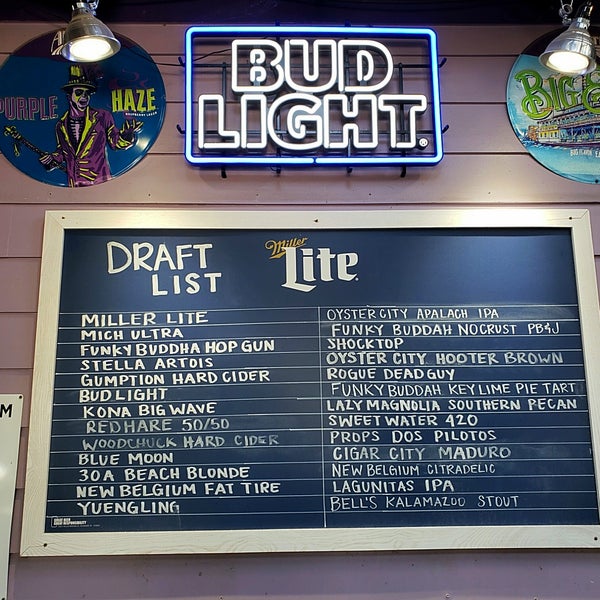 PURPLE HAZE
BUD
LIGHT
BIG
DRAFT
LIST
Miller
Lite
MILLER LITE
MICH ULTRA
FUNKY BUDDHA HOP GUN
STELLA ARTOIS
GUMPTION HARD CIDER
BUD LIGHT
KONA BIG WAVE
RED HARE 50/50
WOODCHUCK HARD CIDER
BLUE MOON
30A BEACH BLONDE
NEW BELGIUM FAT TIRE
YUENGLING
OYSTER CITY APALACH IPA
FUNKY BUDDAH NOCRUST PB&J
SHOCKTOP
OYSTER CITY HOOTER BROWN
ROGUE DEAD GUY
FUNKY BUDDAH KEY LIME PIE TART
LAZY MAGNOLIA SOUTHERN PECAN
SWEET WATER 420
PROPS DOS PILOTOS
CIGAR CITY MADURO
NEW BELGIUM CITRADELIC
LAGUNITAS IPA
BELL'S KALAMAZOO STOUT
M